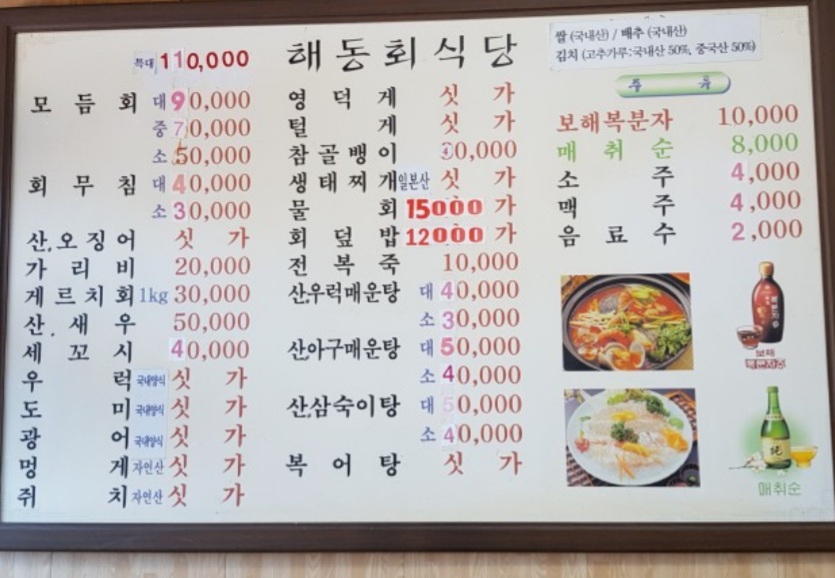 해동회식당
쌀 (국내산) / 배추 (국내산)
김치 (고추가루:국내산 50%, 중국산 50%)
특대 110,000
모듬회 대 90,000
중 70,000
소 50,000
회무침 대 40,000
소 30,000
산.오징어 싯가
가리비 20,000
게르치회 1kg 30,000
산.새우 50,000
세꼬시 40,000
우럭 국내양식 싯가
도미 국내양식 싯가
광어 국내양식 싯가
멍게 자연산 싯가
쥐치 자연산 싯가
영덕게 싯가
털게 싯가
참골뱅이 30,000
생태찌개 일본산 싯가
물회 15000 가
회덮밥 12000 가
전복죽 10,000
산,우럭매운탕 대 40,000
소 30,000
산,아구매운탕 대 50,000
소 40,000
산,삼숙이탕 대 50,000
소 40,000
복어탕 싯가
주류
보해복분자 10,000
매취순 8,000
소주 4,000
맥주 4,000
음료수 2,000
보해
복분자주
매취순